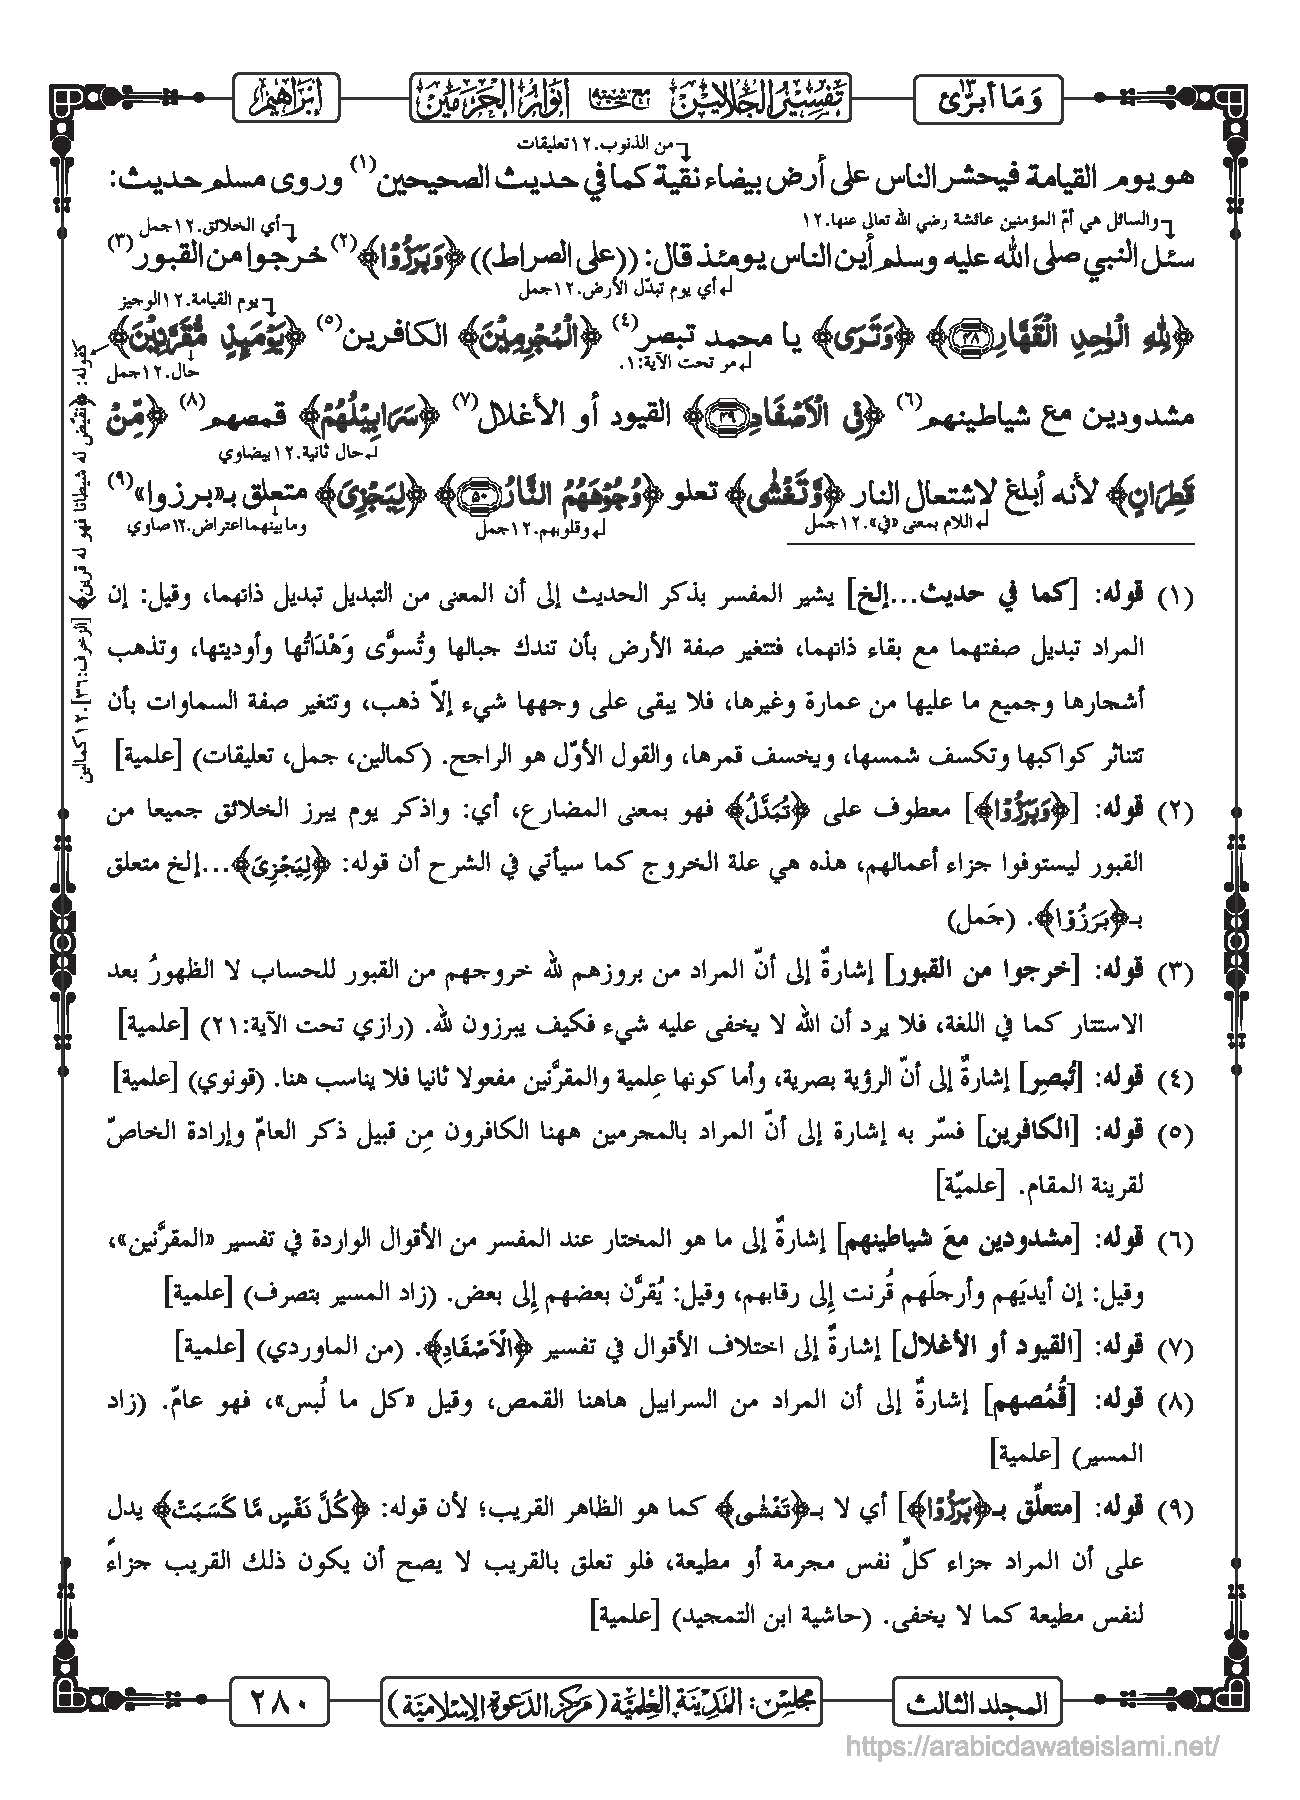 وَمَا أُبَرِّئُ ١٣
تَفْسِيْرُ الْجَلَالَيْنِ مع حاشية أَنْوَارُ الْحَرَمَيْنِ
إِبْرَاهِيْم
من الذنوب.١٢ تعليقات
هو يوم القيامة فيحشر الناس على أرض بيضاء نقية كما في حديث الصحيحين(١) وروى مسلم حديث:
والسائل هي أمّ المؤمنين عائشة رضي الله تعالى عنها.١٢
أي الخلائق.١٢جمل
سئل النبي صلى الله عليه وسلم أين الناس يومئذ قال: ((على الصراط)) ﴿وَبَرَزُوْا﴾(٢) خرجوا من القبور(٣)
أي يوم تبدّل الأرض.١٢جمل
يوم القيامة.١٢الوجيز
﴿لِلّٰهِ الْوٰحِدِ الْقَهَّارِ ٤٨﴾ ﴿وَتَرَى﴾ يا محمد تبصر(٤) ﴿الْمُجْرِمِيْنَ﴾ الكافرين(٥) ﴿يَوْمَىِٕذٍ مُّقَرَّنِيْنَ﴾
مر تحت الآية:١.
حال.١٢جمل
مشدودين مع شياطينهم(٦) ﴿فِى الْاَصْفَادِ ٤٩﴾ القيود أو الأغلال(٧) ﴿سَرَابِيْلُهُمْ﴾ قمصهم(٨) ﴿مِّنْ
حال ثانية.١٢بيضاوي
قَطِرَانٍ﴾ لأنه أبلغ لاشتعال النار ﴿وَّتَغْشٰى﴾ تعلو ﴿وُجُوْهَهُمُ النَّارُ ٥٠﴾ ﴿لِيَجْزِىَ﴾ متعلق بـ«برزوا»(٩)
اللام بمعنى «في».١٢جمل
وقلوبهم.١٢جمل
وما بينهما اعتراض.١٢ صاوي
كقوله: ﴿نقيّض له شيطانا فهو له قرين﴾ [الزخرف:٣٦].١٢كمالين
(١) قوله: [كما في حديث...إلخ] يشير المفسر بذكر الحديث إلى أن المعنى من التبديل تبديل ذاتهما، وقيل: إن
المراد تبديل صفتهما مع بقاء ذاتهما، فتتغير صفة الأرض بأن تندك جبالها وتُسوَّى وَهْدَاتُها وأوديتها، وتذهب
أشجارها وجميع ما عليها من عمارة وغيرها، فلا يبقى على وجهها شيء إلاّ ذهب، وتتغير صفة السماوات بأن
تتناثر كواكبها وتكسف شمسها، ويخسف قمرها، والقول الأوّل هو الراجح. (كمالين، جمل، تعليقات) [علمية]
(٢) قوله: [﴿وَبَرَزُوْا﴾] معطوف على ﴿تُبَدَّلُ﴾ فهو بمعنى المضارع، أي: واذكر يوم يبرز الخلائق جميعا من
القبور ليستوفوا جزاء أعمالهم، هذه هي علة الخروج كما سيأتي في الشرح أن قوله: ﴿لِيَجْزِىَ﴾...إلخ متعلق
بـ﴿بَرَزُوْا﴾. (جَمل)
(٣) قوله: [خرجوا من القبور] إشارةٌ إلى أنّ المراد من بروزهم لله خروجهم من القبور للحساب لا الظهورُ بعد
الاستتار كما في اللغة، فلا يرد أن الله لا يخفى عليه شيء فكيف يبرزون لله. (رازي تحت الآية:٢١) [علمية]
(٤) قوله: [تُبصِر] إشارةٌ إلى أنّ الرؤية بصرية، وأما كونها عِلمية والمقرَّنين مفعولا ثانيا فلا يناسب هنا. (قونوي) [علمية]
(٥) قوله: [الكافرين] فسّر به إشارة إلى أنّ المراد بالمجرمين ههنا الكافرون مِن قبيل ذكر العامّ وإرادة الخاصّ
لقرينة المقام. [علميّة]
(٦) قوله: [مشدودين معَ شياطينهم] إشارةٌ إلى ما هو المختار عند المفسر من الأقوال الواردة في تفسير «المقرَّنين»،
وقيل: إن أيديَهم وأرجلَهم قُرنت إلى رقابهم، وقيل: يُقرَّن بعضهم إلى بعض. (زاد المسير بتصرف) [علمية]
(٧) قوله: [القيود أو الأغلال] إشارةٌ إلى اختلاف الأقوال في تفسير ﴿الْاَصْفَادِ﴾. (من الماوردي) [علمية]
(٨) قوله: [قُمُصهم] إشارةٌ إلى أن المراد من السرابيل هاهنا القمص، وقيل «كل ما لُبس»، فهو عامّ. (زاد
المسير) [علمية]
(٩) قوله: [متعلِّق بـ﴿بَرَزُوْا﴾] أي لا بـ﴿تَغْشٰى﴾ كما هو الظاهر القريب؛ لأن قوله: ﴿كُلَّ نَفْسٍ مَّا كَسَبَتْ﴾ يدل
على أن المراد جزاء كلِّ نفس مجرمة أو مطيعة، فلو تعلق بالقريب لا يصح أن يكون ذلك القريب جزاءً
لنفس مطيعة كما لا يخفى. (حاشية ابن التمجيد) [علمية]
المجلد الثالث
مجلس: المَدِيْنَة العِلْمِيَّة (مَرْكَز الدَعْوَة الإِسْلَامِيَّة)
٢٨٠
https://arabicdawateislami.net/